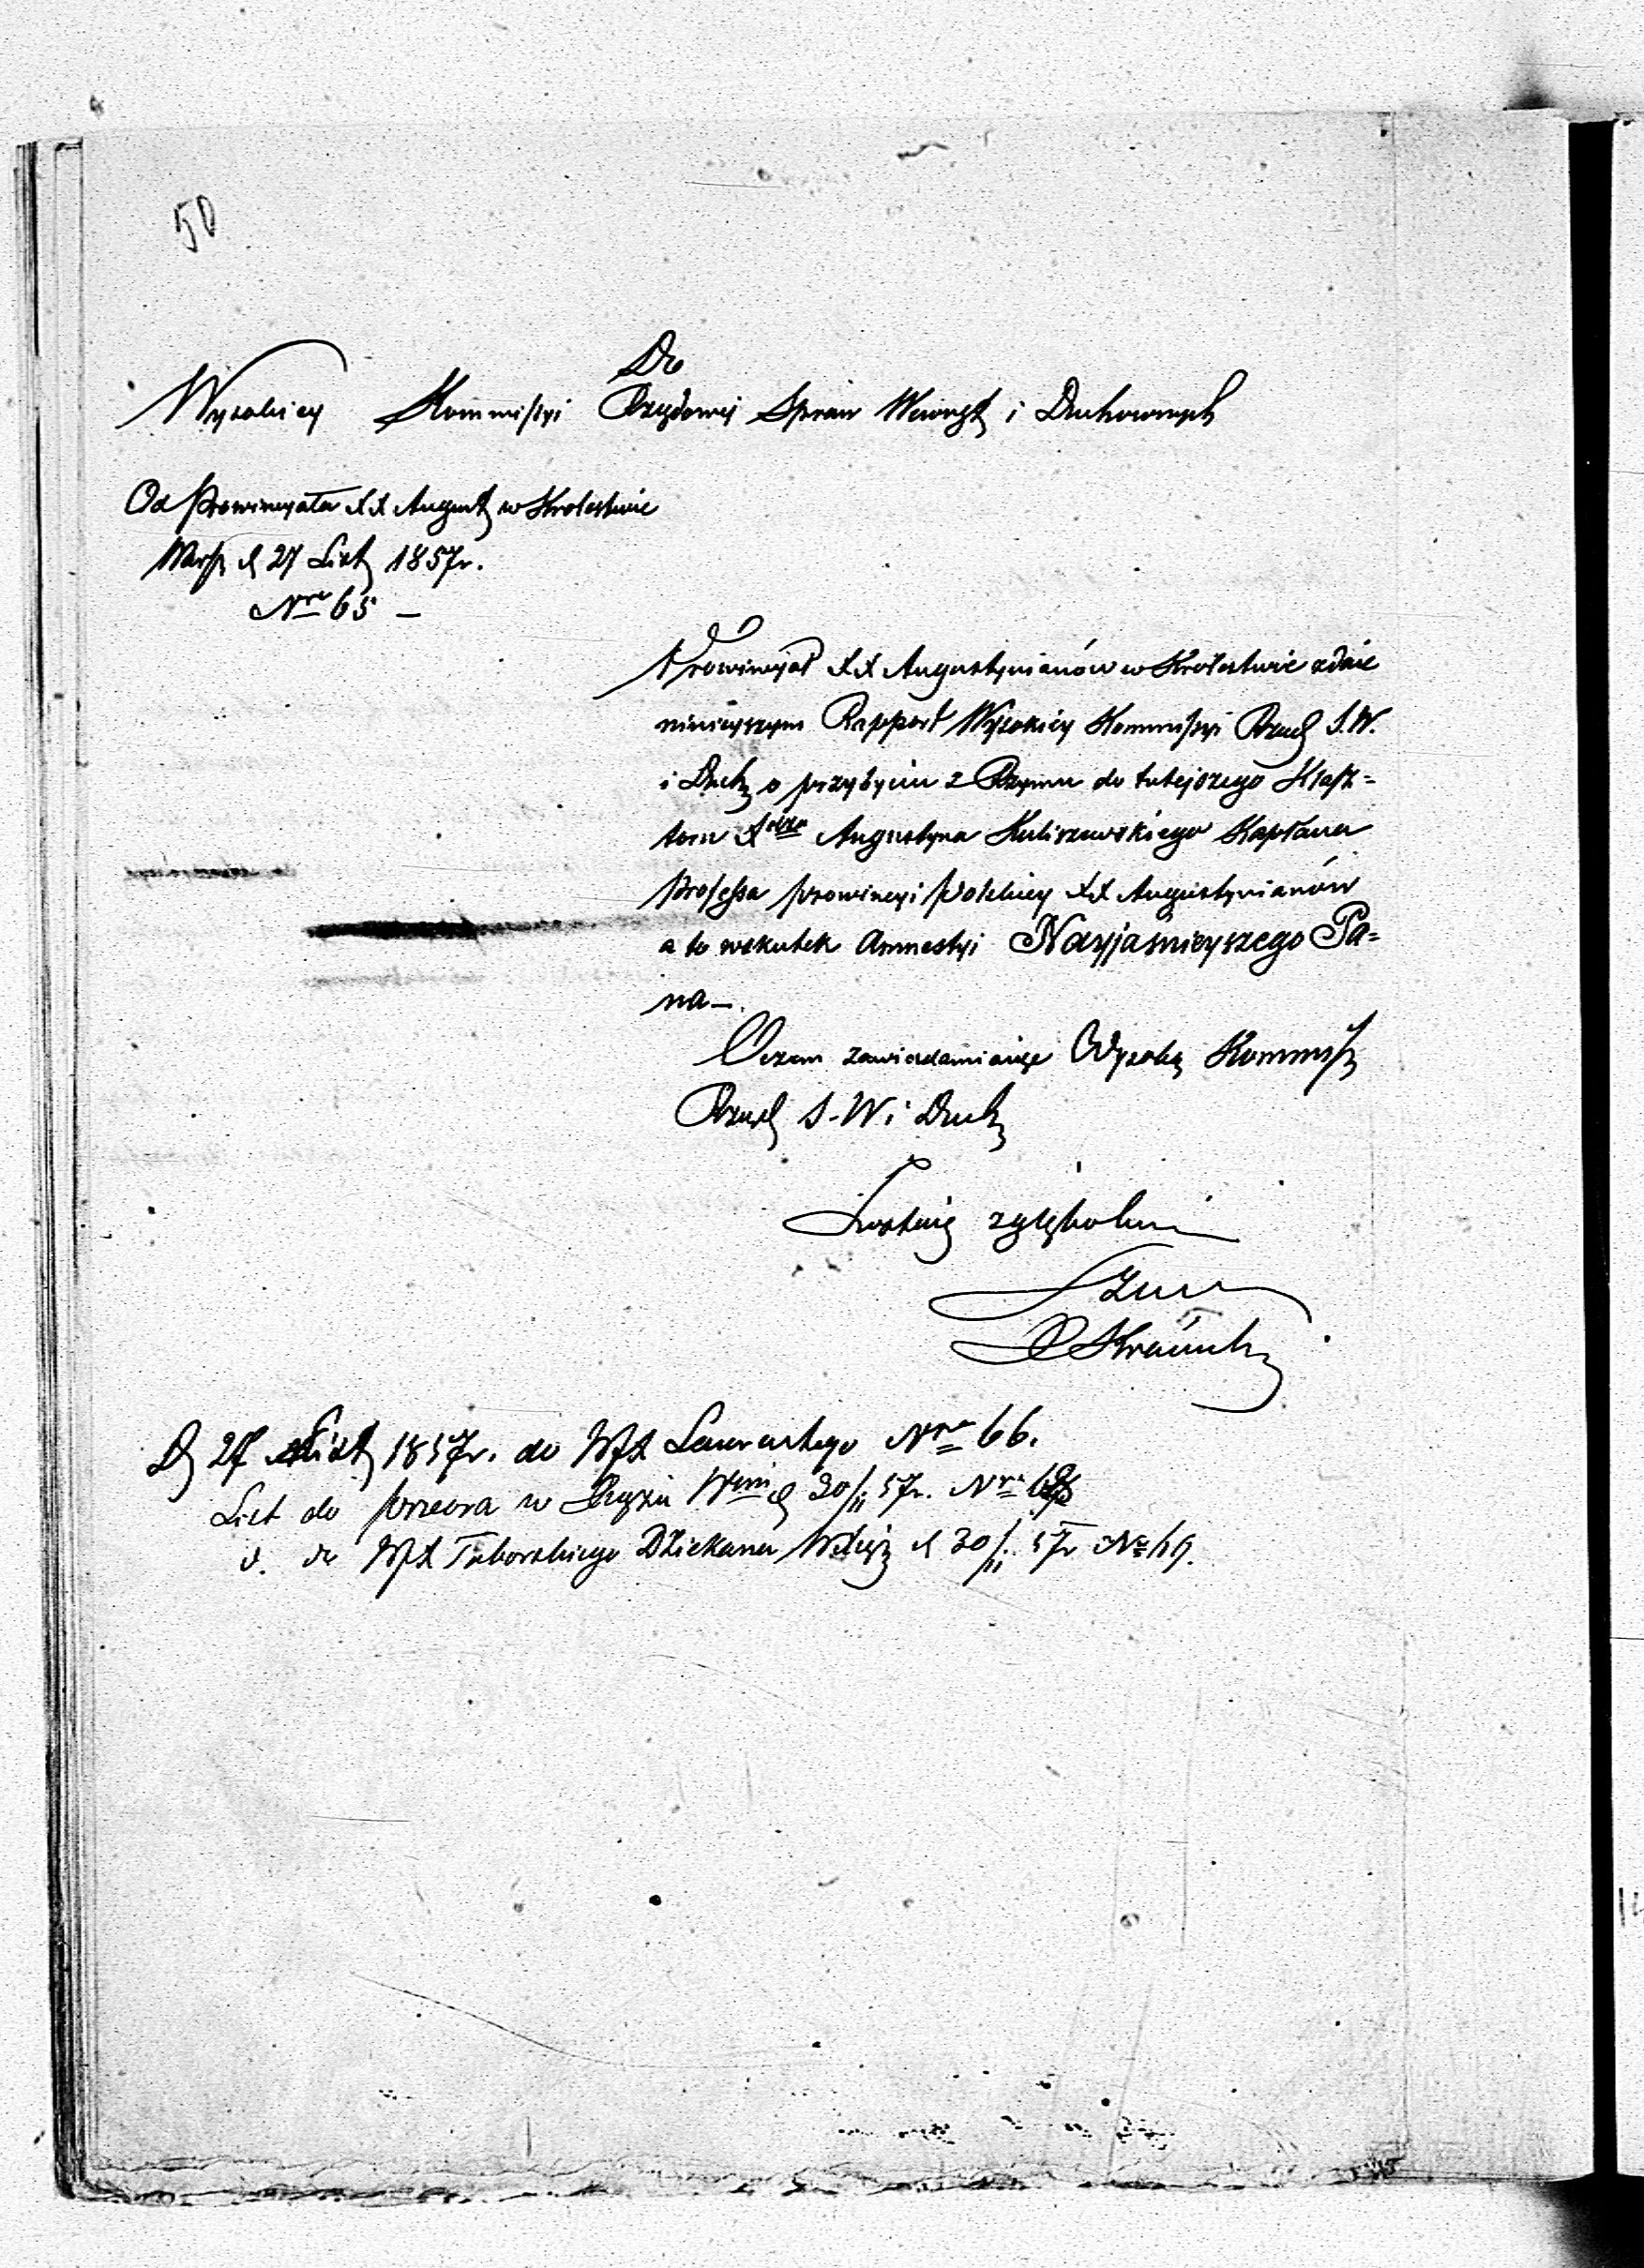 50
Do
Wysokiey Kommissyi Rządowej Spraw Wewnęt i Duchownych
Od Prowincyała XX August w Krolestwie
Warsz d 27 List 1857r.
Nro 65 –
Prowincyał XX Augustynianów w Krolestwie zdaie
ninieyszym Rapport Wysokiey Kommissyi Rząd S.W.
i Duch o przybyciu z Rzymu do tutejszego Klasz=
toru Xdza Augustyna Kuliszewskiego Kapłana
Professa prowincyi Polskiey XX Augustynianów
a to wskutek Amnestyi Nayjaśnieyszego Pa=
na –.
O czem zawiadamiaiąc Wysoką Kommiss
Rząd S. W i Duch
zgłębokim
D 27 List 1857r. do WJX Nro 66.
List do przeora w d 30/11 57r. Nro
d. do WJX Taborskiego Dziekana d 30/11 57r No 69.